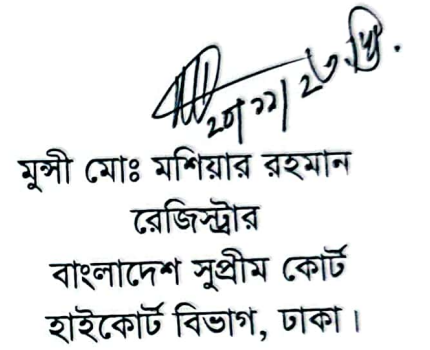 ২০/১১/২৩ খ্রি.
মুন্সী মোঃ মশিয়ার রহমান
রেজিস্ট্রার
বাংলাদেশ সুপ্রীম কোর্ট
হাইকোর্ট বিভাগ, ঢাকা।